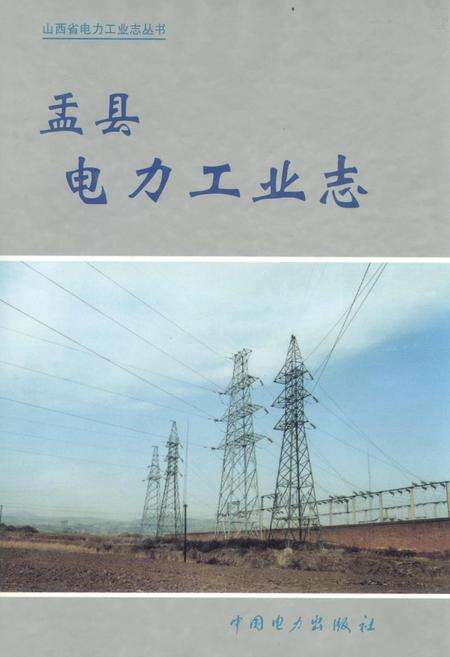 山西省电力工业志丛书
盂县
电力工业志
中国电力出版社